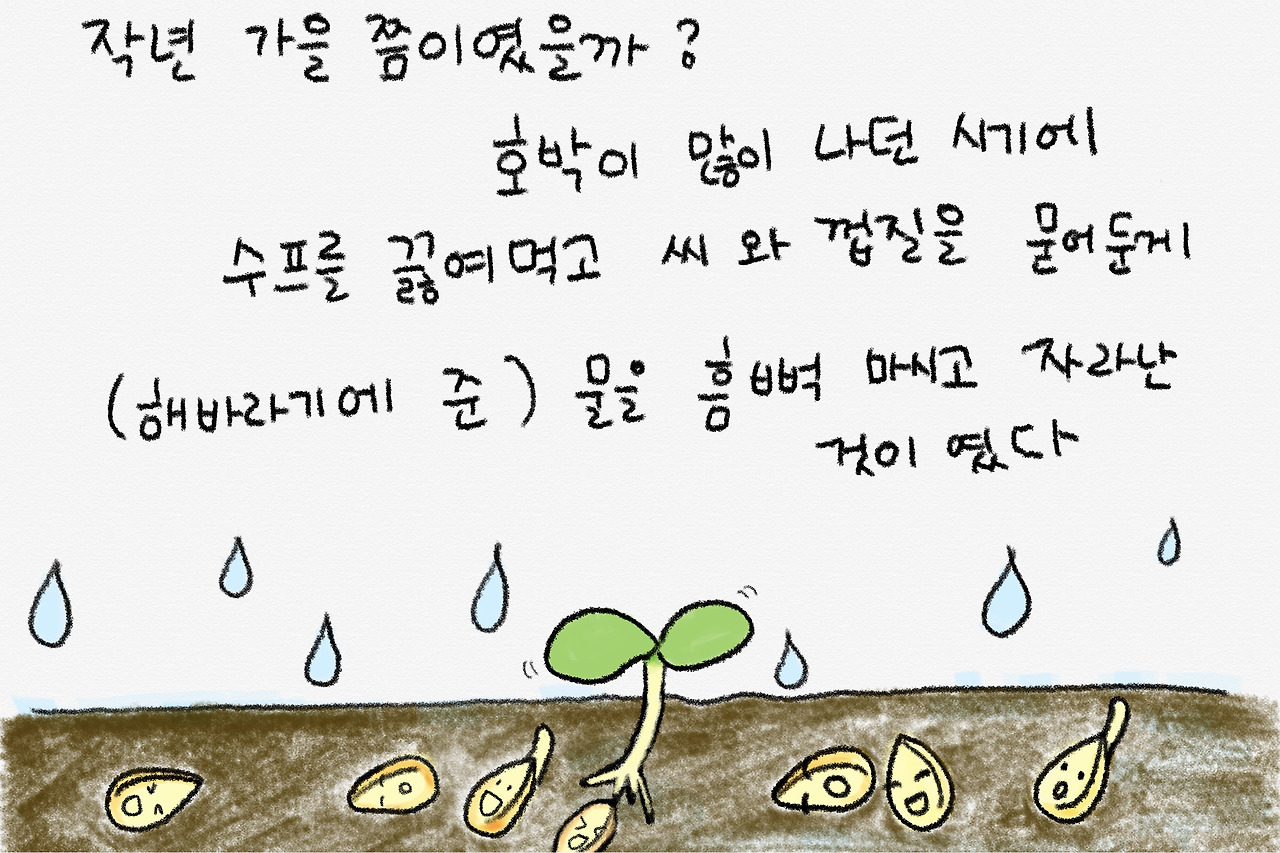 작년 가을 쯤이였을까?
호박이 많이 나던 시기에
수프를 끓여먹고 씨 와 껍질을 묻어둔게
(해바라기에 준) 물을 흠뻑 마시고 자라난
것이 였다